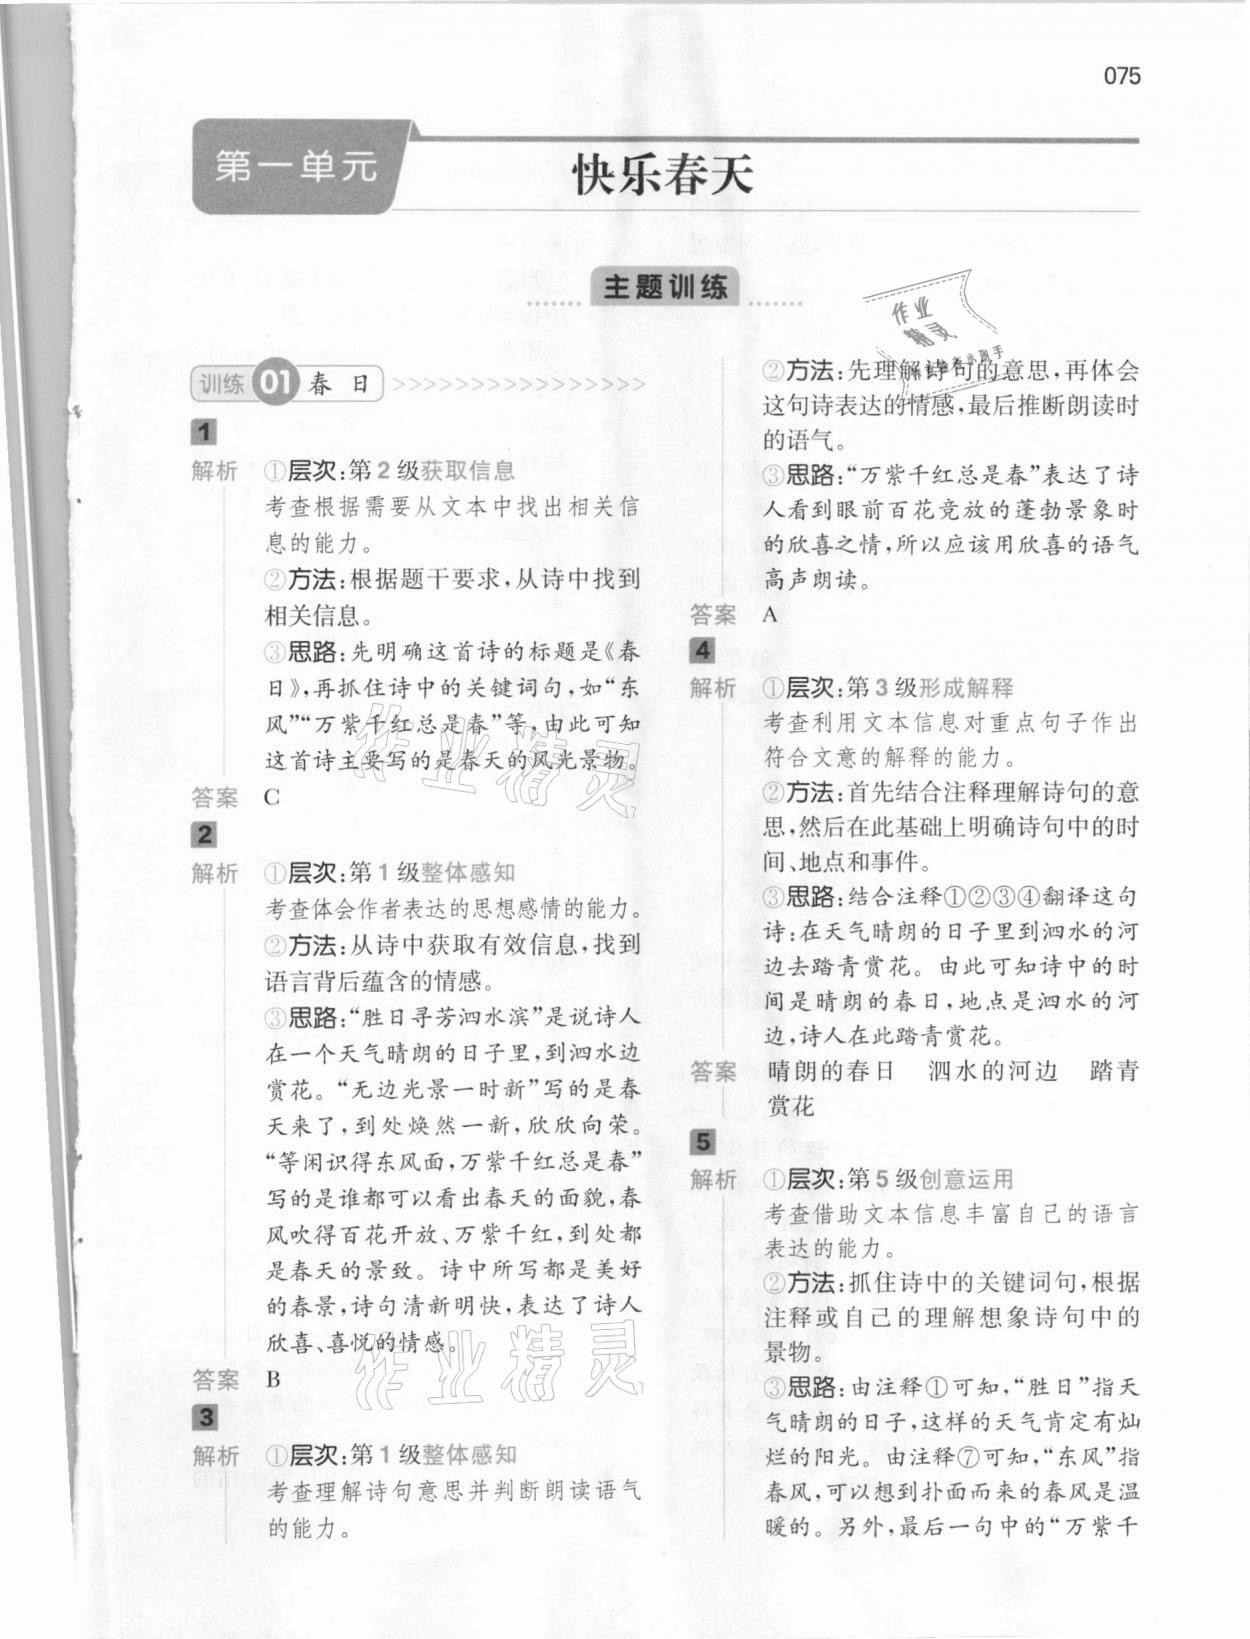 075
第一单元
快乐春天
主题训练
训练 01 春 日
1
解析 ①层次:第 2 级获取信息
考查根据需要从文本中找出相关信
息的能力。
②方法:根据题干要求,从诗中找到
相关信息。
③思路:先明确这首诗的标题是《春
日》,再抓住诗中的关键词句,如“东
风”“万紫千红总是春”等,由此可知
这首诗主要写的是春天的风光景物。
答案 C
2
解析 ①层次:第 1 级整体感知
考查体会作者表达的思想感情的能力。
②方法:从诗中获取有效信息,找到
语言背后蕴含的情感。
③思路:“胜日寻芳泗水滨”是说诗人
在一个天气晴朗的日子里,到泗水边
赏花。“无边光景一时新”写的是春
天来了,到处焕然一新,欣欣向荣。
“等闲识得东风面,万紫千红总是春”
写的是谁都可以看出春天的面貌,春
风吹得百花开放、万紫千红,到处都
是春天的景致。诗中所写都是美好
的春景,诗句清新明快,表达了诗人
欣喜、喜悦的情感。
答案 B
3
解析 ①层次:第 1 级整体感知
考查理解诗句意思并判断朗读语气
的能力。
②方法:先理解诗句的意思,再体会
这句诗表达的情感,最后推断朗读时
的语气。
③思路:“万紫千红总是春”表达了诗
人看到眼前百花竞放的蓬勃景象时
的欣喜之情,所以应该用欣喜的语气
高声朗读。
答案 A
4
解析 ①层次:第 3 级形成解释
考查利用文本信息对重点句子作出
符合文意的解释的能力。
②方法:首先结合注释理解诗句的意
思,然后在此基础上明确诗句中的时
间、地点和事件。
③思路:结合注释①②③④翻译这句
诗:在天气晴朗的日子里到泗水的河
边去踏青赏花。由此可知诗中的时
间是晴朗的春日,地点是泗水的河
边,诗人在此踏青赏花。
答案 晴朗的春日 泗水的河边 踏青
赏花
5
解析 ①层次:第 5 级创意运用
考查借助文本信息丰富自己的语言
表达的能力。
②方法:抓住诗中的关键词句,根据
注释或自己的理解想象诗句中的
景物。
③思路:由注释①可知,“胜日”指天
气晴朗的日子,这样的天气肯定有灿
烂的阳光。由注释⑦可知,“东风”指
春风,可以想到扑面而来的春风是温
暖的。另外,最后一句中的“万紫千
作业
精灵
作业精灵
作业精灵